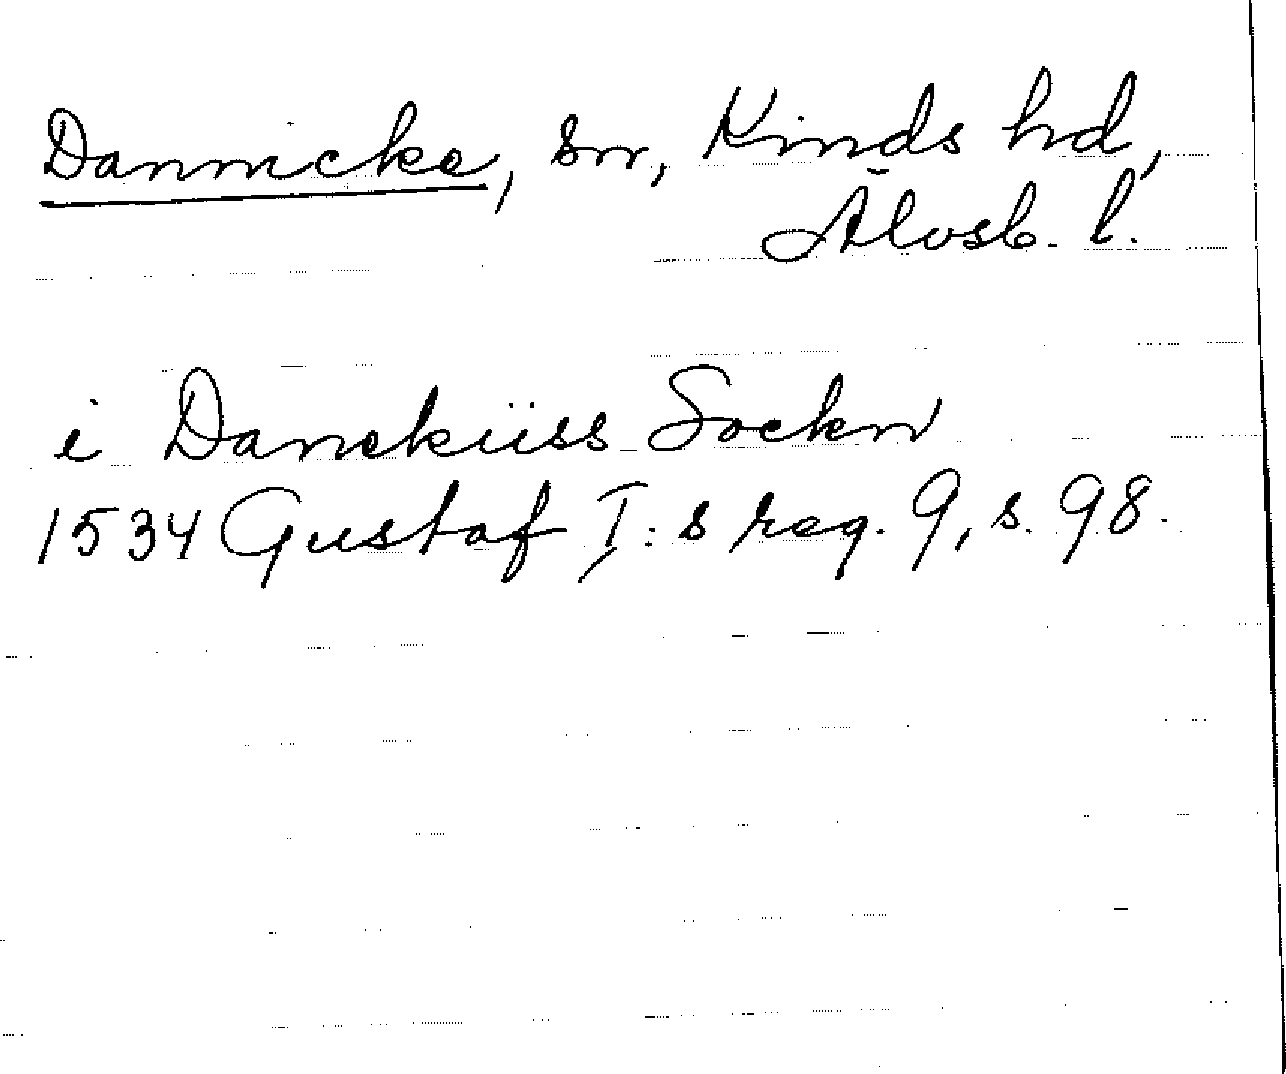 Dannicke, sn, Kinds hd,
Älvsb. l.
i Daneküss Sockn
1534 Gustaf I:s reg. 9, s. 98.